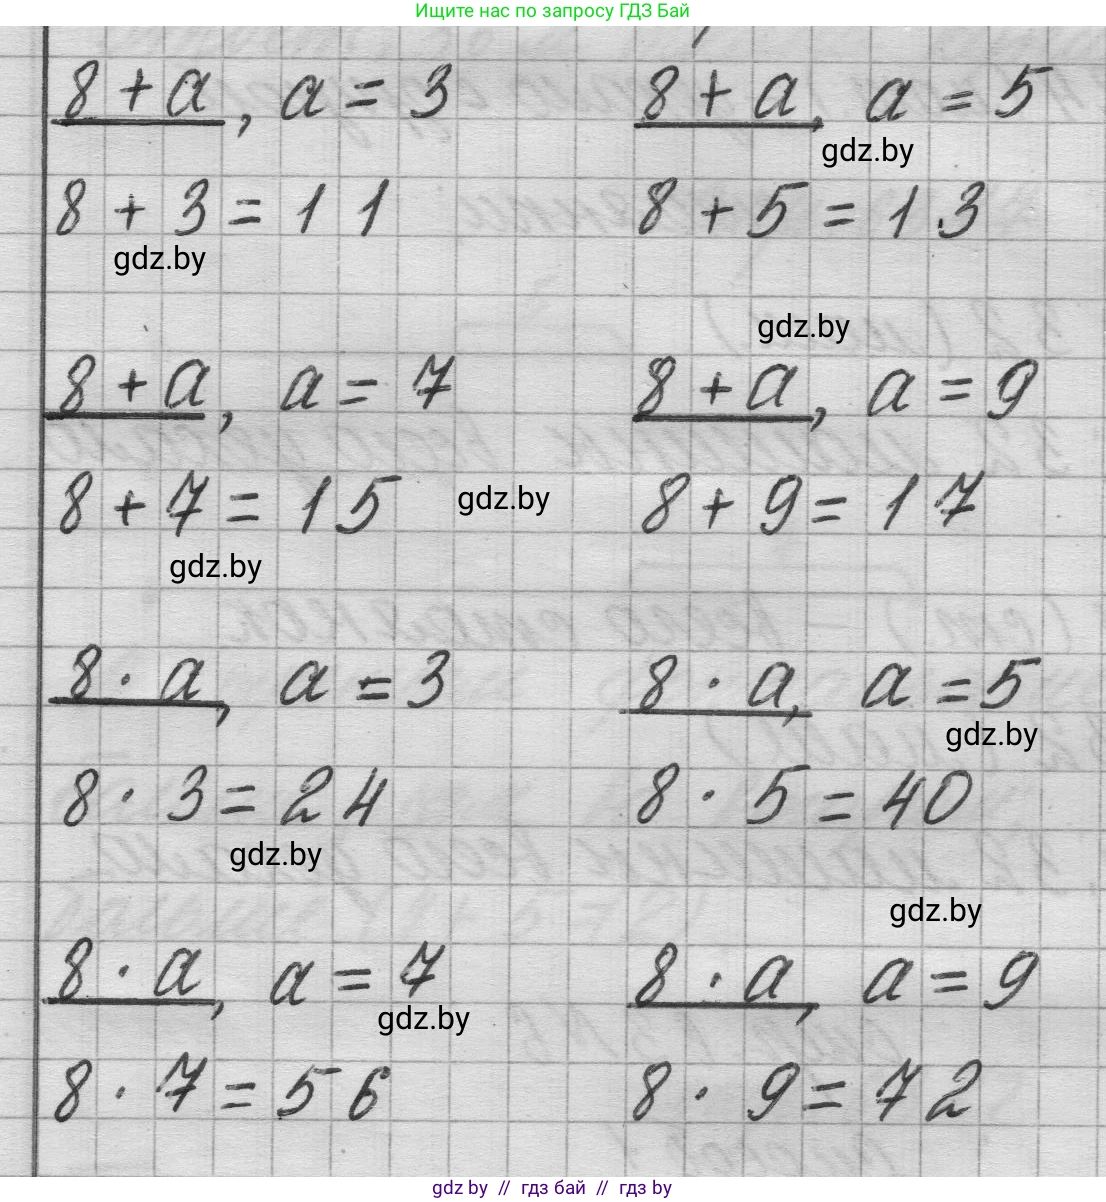 Ищите нас по запросу ГДЗ Бай
8 + a, a = 3    8 + a, a = 5
gdz.by
8 + 3 = 11    8 + 5 = 13
gdz.by
gdz.by
8 + a, a = 7    8 + a, a = 9
8 + 7 = 15    gdz.by    8 + 9 = 17
gdz.by
8 · a, a = 3    8 · a, a = 5
gdz.by
8 · 3 = 24    8 · 5 = 40
gdz.by
gdz.by
8 · a, a = 7    8 · a, a = 9
gdz.by
8 · 7 = 56    8 · 9 = 72
gdz.by // гдз бай // гдз by